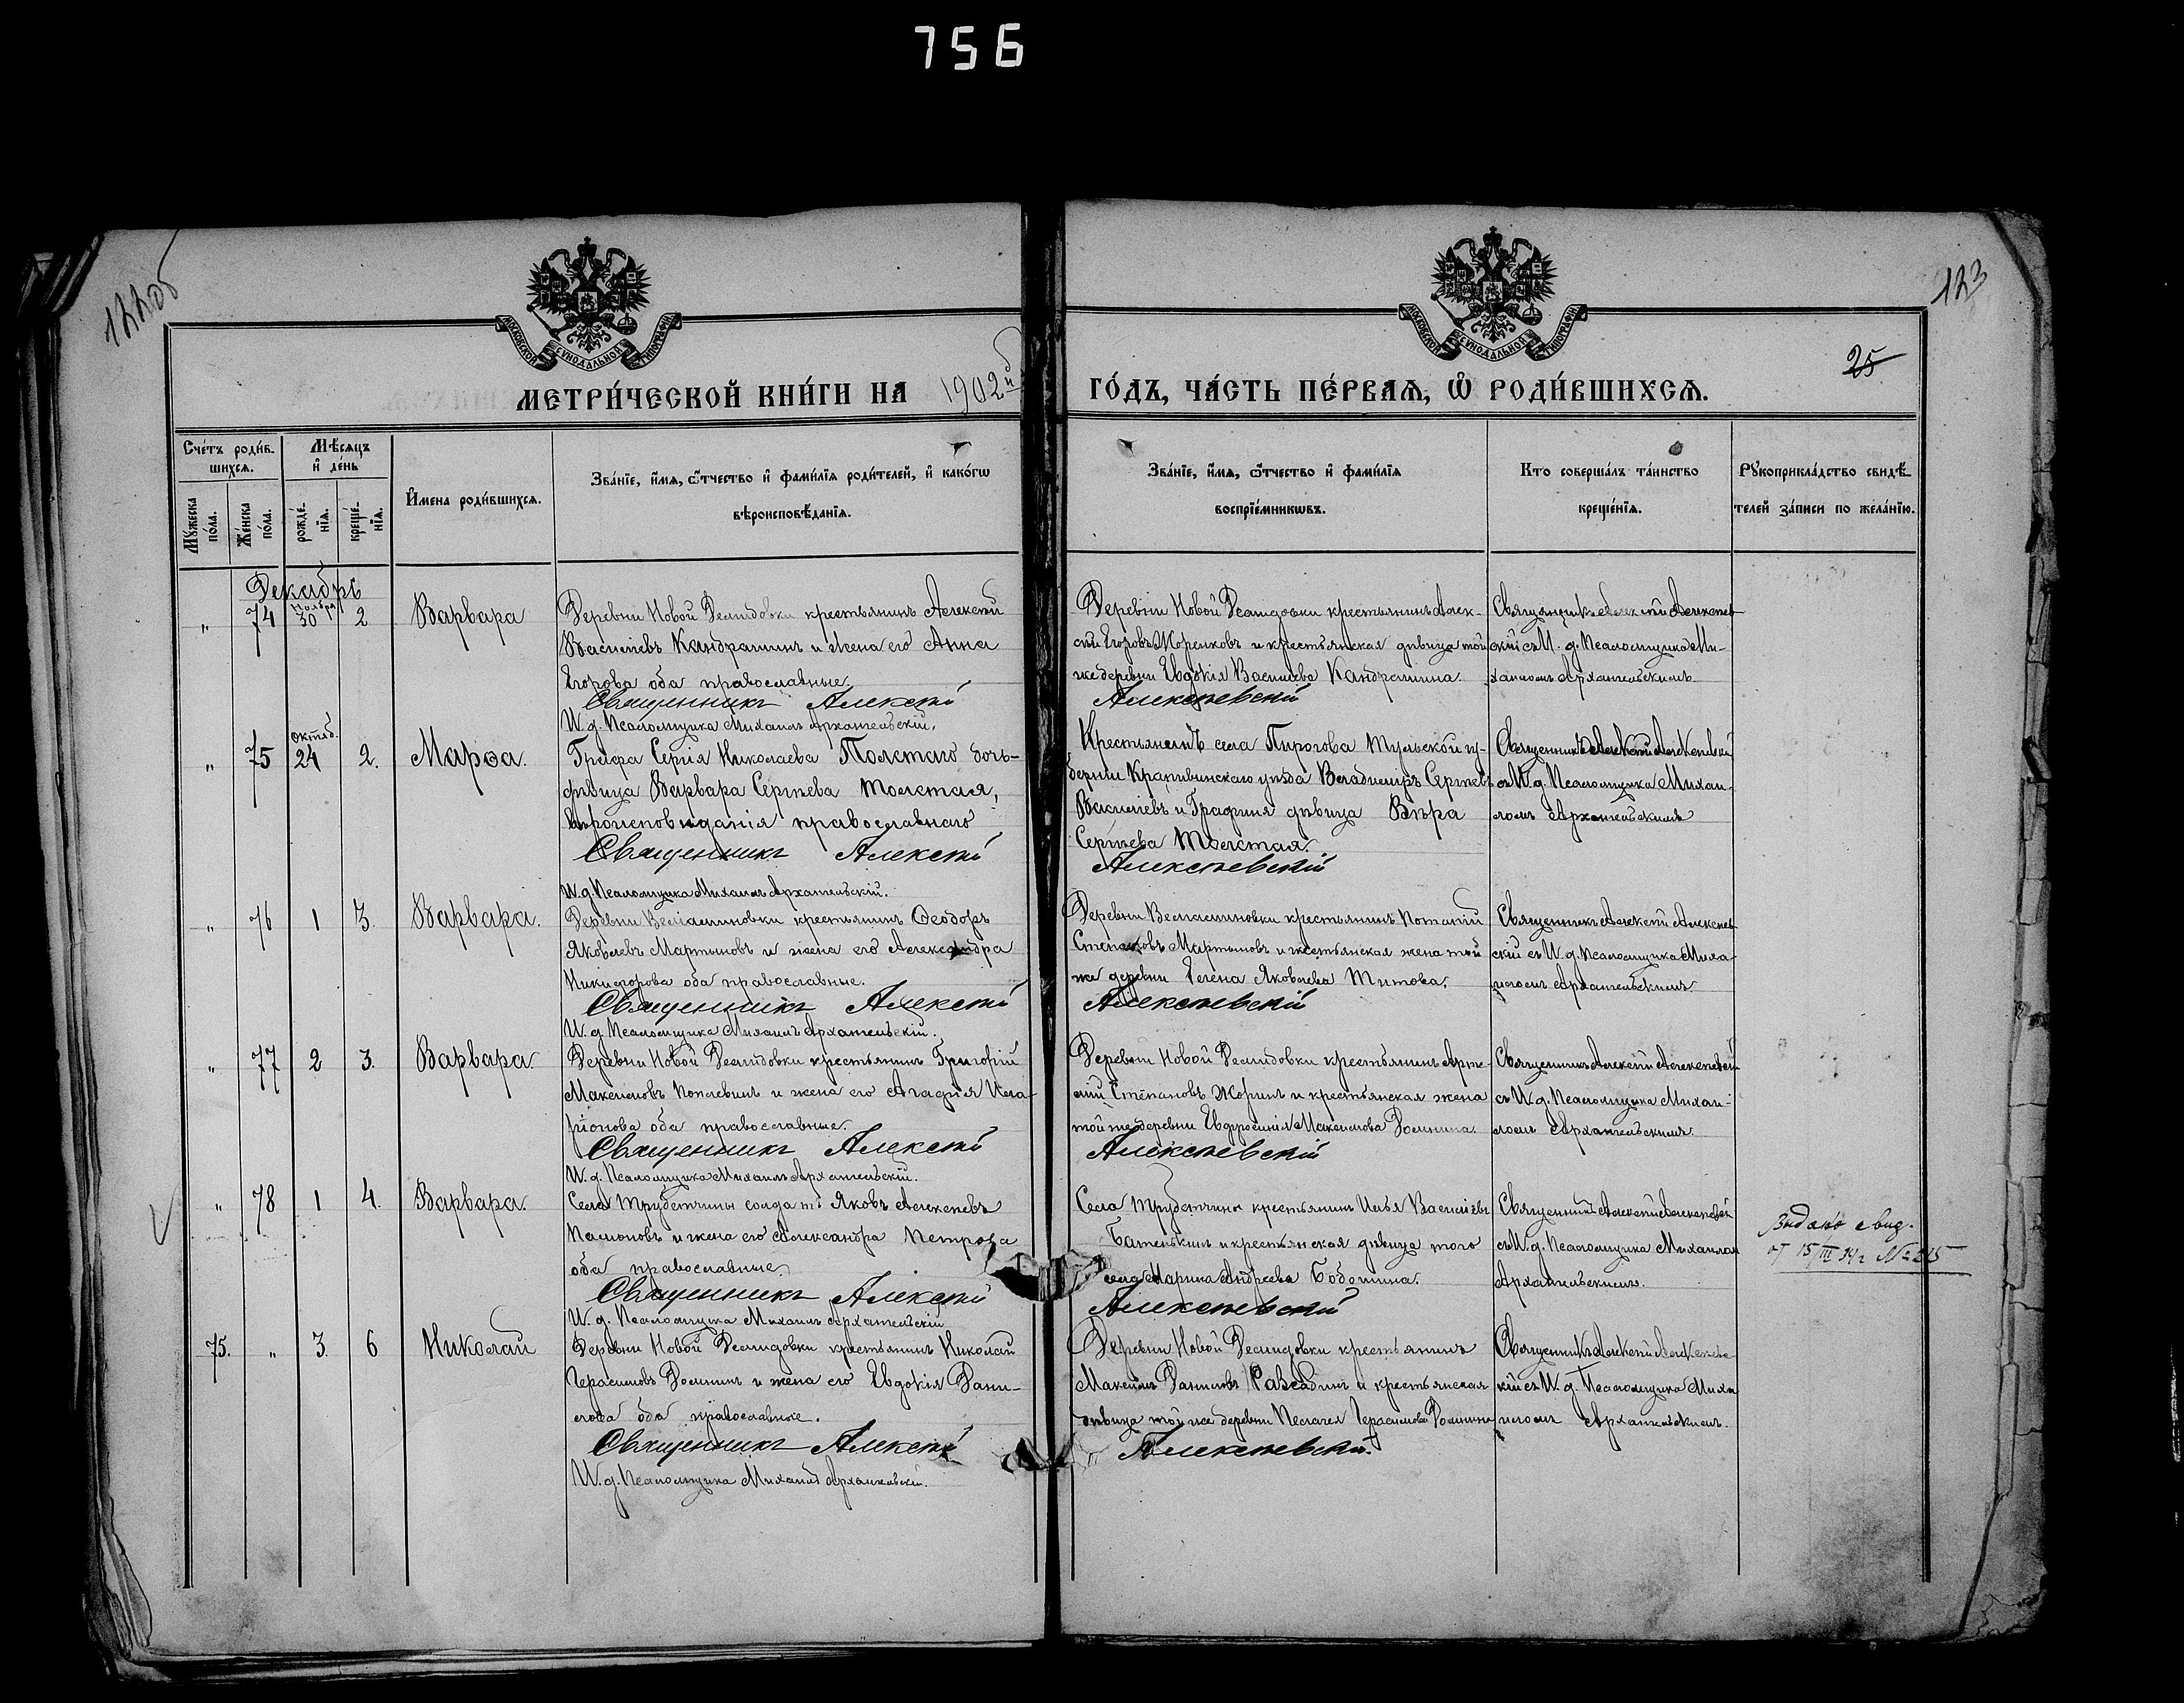 756
122об
123
25
МОСКОВСКОЙ СѴНОДАЛЬНОЙ ТИПОГРАФІИ
МОСКОВСКОЙ СѴНОДАЛЬНОЙ ТИПОГРАФІИ
МЕТРИ́ЧЕСКОЙ КНИ́ГИ НА 1902й ГО́ДЪ, ЧА́СТЬ ПЕ́РВАЯ, Ѽ РОДИ́ВШИХСЯ.
Сче́тъ роди́в-
шихся.
Мѣ́сяцъ
и҆ де́нь
Мꙋ́жеска
по́ла.
Же́нска
по́ла.
рожде́-
нїя.
креще́-
нїя.
И҆мена роди́вшихся.
Зва́нїе, и҆́мя, ѻ҆́тчество и҆ фами́лїя роди́телей, и҆ како́гѡ
вѣроисповѣ́данїя.
Зва́нїе, и҆́мя, ѻ҆́тчество и҆ фами́лїя
воспрїе́мникѡвъ.
Кто соверша́лъ та́инство
креще́нїя.
Рꙋкоприкла́дство свидѣ́-
телей за́писи по жела́нїю.
Декабрь
" 74 Ноября 30 2 Варвара
Деревни Новой Демидовки крестьянинъ Алексѣй
Васильевъ Кандрашинъ и жена его Анна
Егорова оба православные.
Священникъ Алексѣй
И. д. Псаломщика Михаилъ Архангельскій.
Деревни Новой Демидовки крестьянинъ Алек-
сѣй Егоровъ и крестьянская дѣвица той
же деревни Евдокія Васильева Кандрашина.
Алексѣевскій
Священникъ Алексѣй Алексѣев-
скій съ И. д. Псаломщика Ми-
хаиломъ Архангельскимъ.
" 75 Октяб. 24 2. Марѳа.
Графа Сергія Николаева Толстаго дочь-
дѣвица Варвара Сергѣева Толстая,
вѣроисповѣданія православнаго
Священникъ Алексѣй
И. д. Псаломщика Михаилъ Архангельскій.
Крестьянинъ села Пирогова Тульской гу-
берніи Крапивинскаго уѣзда Владиміръ Сергѣевъ
Васильевъ и Графиня дѣвица Вѣра
Сергѣева Толстая.
Алексѣевскій
Священникъ Алексѣй Алексѣевскій
съ И. д. Псаломщика Михаи-
ломъ Архангельскимъ
" 76 1 3. Варвара.
Деревни Вельяминовки крестьянинъ Ѳеодоръ
Яковлевъ Мартыновъ и жена его Александра
Никифорова оба православные.
Священникъ Алексѣй
И. д. Псаломщика Михаилъ Архангельскій.
Деревни Вельяминовки крестьянинъ Потапій
Степановъ Мартыновъ и крестьянская жена той
же деревни Елена Яковлева Титова.
Алексѣевскій
Священникъ Алексѣй Алексѣев-
скій съ И. д. Псаломщика Миха-
иломъ Архангельскимъ.
" 77 2 3. Варвара.
Деревни Новой Демидовки крестьянинъ Григорій
Максимовъ и жена его Агафія Ила-
ріонова оба православные.
Священникъ Алексѣй
И. д. Псаломщика Михаилъ Архангельскій.
Деревни Новой Демидовки крестьянинъ Арте-
мій Степановъ Жоринъ и крестьянская жена
той же деревни Евфросинія Максимова Домнина.
Алексѣевскій
Священникъ Алексѣй Алексѣевскій
съ И. д. Псаломщика Михаи-
ломъ Архангельскимъ.
" 78 1 4. Варвара.
Села Трубетчины солдатъ Яковъ Алексѣевъ
и жена его Александра Петрова
оба православные
Священникъ Алексѣй
И. д. Псаломщика Михаилъ Архангельскій
Села Трубетчины крестьянинъ Илья Васильевъ
Батенькинъ и крестьянская дѣвица того
села Марина Андреева
Алексѣевскій
Священникъ Алексѣй Алексѣевскій
съ И. д. Псаломщика Михаиломъ
Архангельскимъ.
Выдано свид.
от 15/III 34г №
75. " 3. 6 Николай
Деревни Новой Демидовки крестьянинъ Николай
Герасимовъ Домнинъ и жена его Евдокія Дани-
лова оба православные.
Священникъ Алексѣй
И. д. Псаломщика Михаилъ Архангельскій.
Деревни Новой Демидовки крестьянинъ
Максимъ Даниловъ и крестьянская
дѣвица той же деревни Пелагея Герасимова Домнина
Алексѣевскій.
Священникъ Алексѣй Алексѣевс-
кій съ И. д. Псаломщика Миха
иломъ Архангельскимъ.